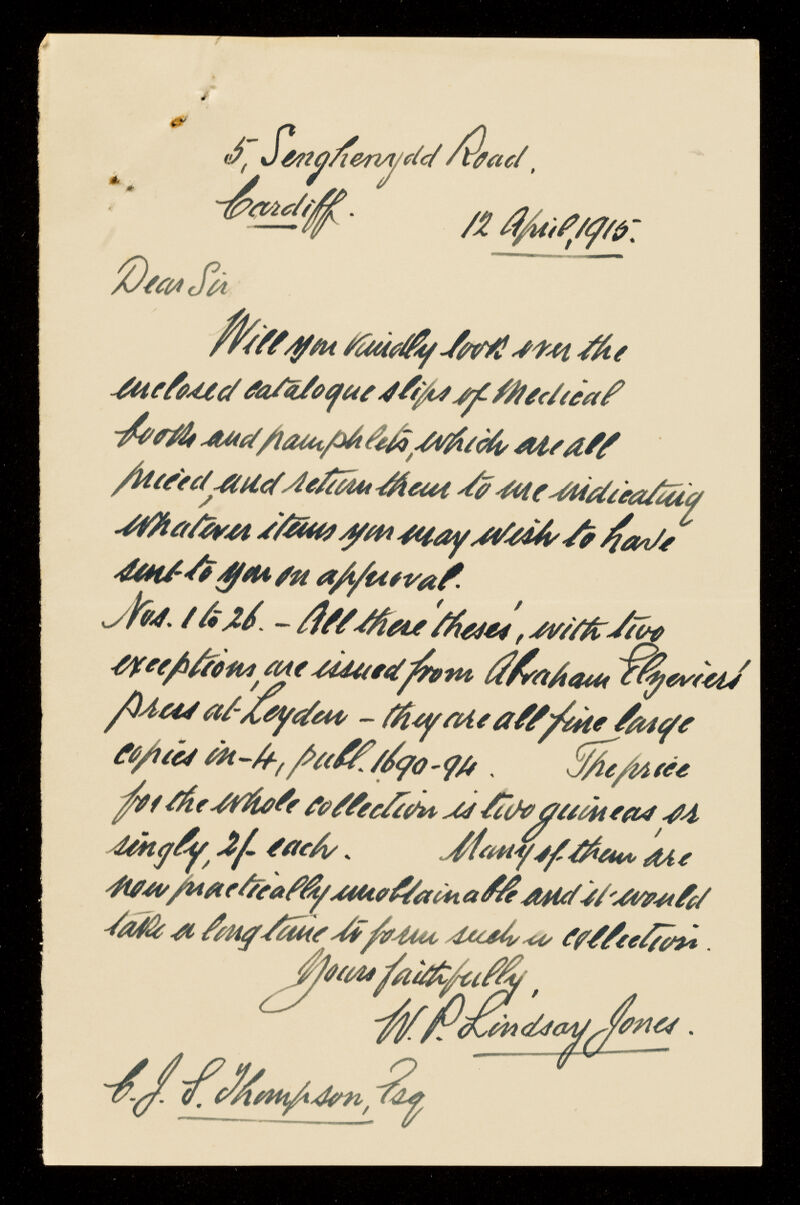 5, Senghenydd Road.
Cardiff.
12 April, 1915.
Dear Sir
Will you kindly look over the
enclosed catalogue slips of Medical
books and pamphlets, which are all
priced, and return them to me indicating
whatever items you may wish to have
sent to you on approval.
Nos. 1 to 26. - All these 'theses', with two
exceptions, are issued from Abraham Elzeviers'
press at Leyden - they are all fine large
copies in-4, publ. 1690-94. The price
for the whole collection is two guineas, or
singly, 2/- each. Many of them are
now practically unobtainable and it would
take a long time to form such a collection.
Yours faithfully,
W. P. Lindsay Jones.
C. J. S. Thompson, Esq